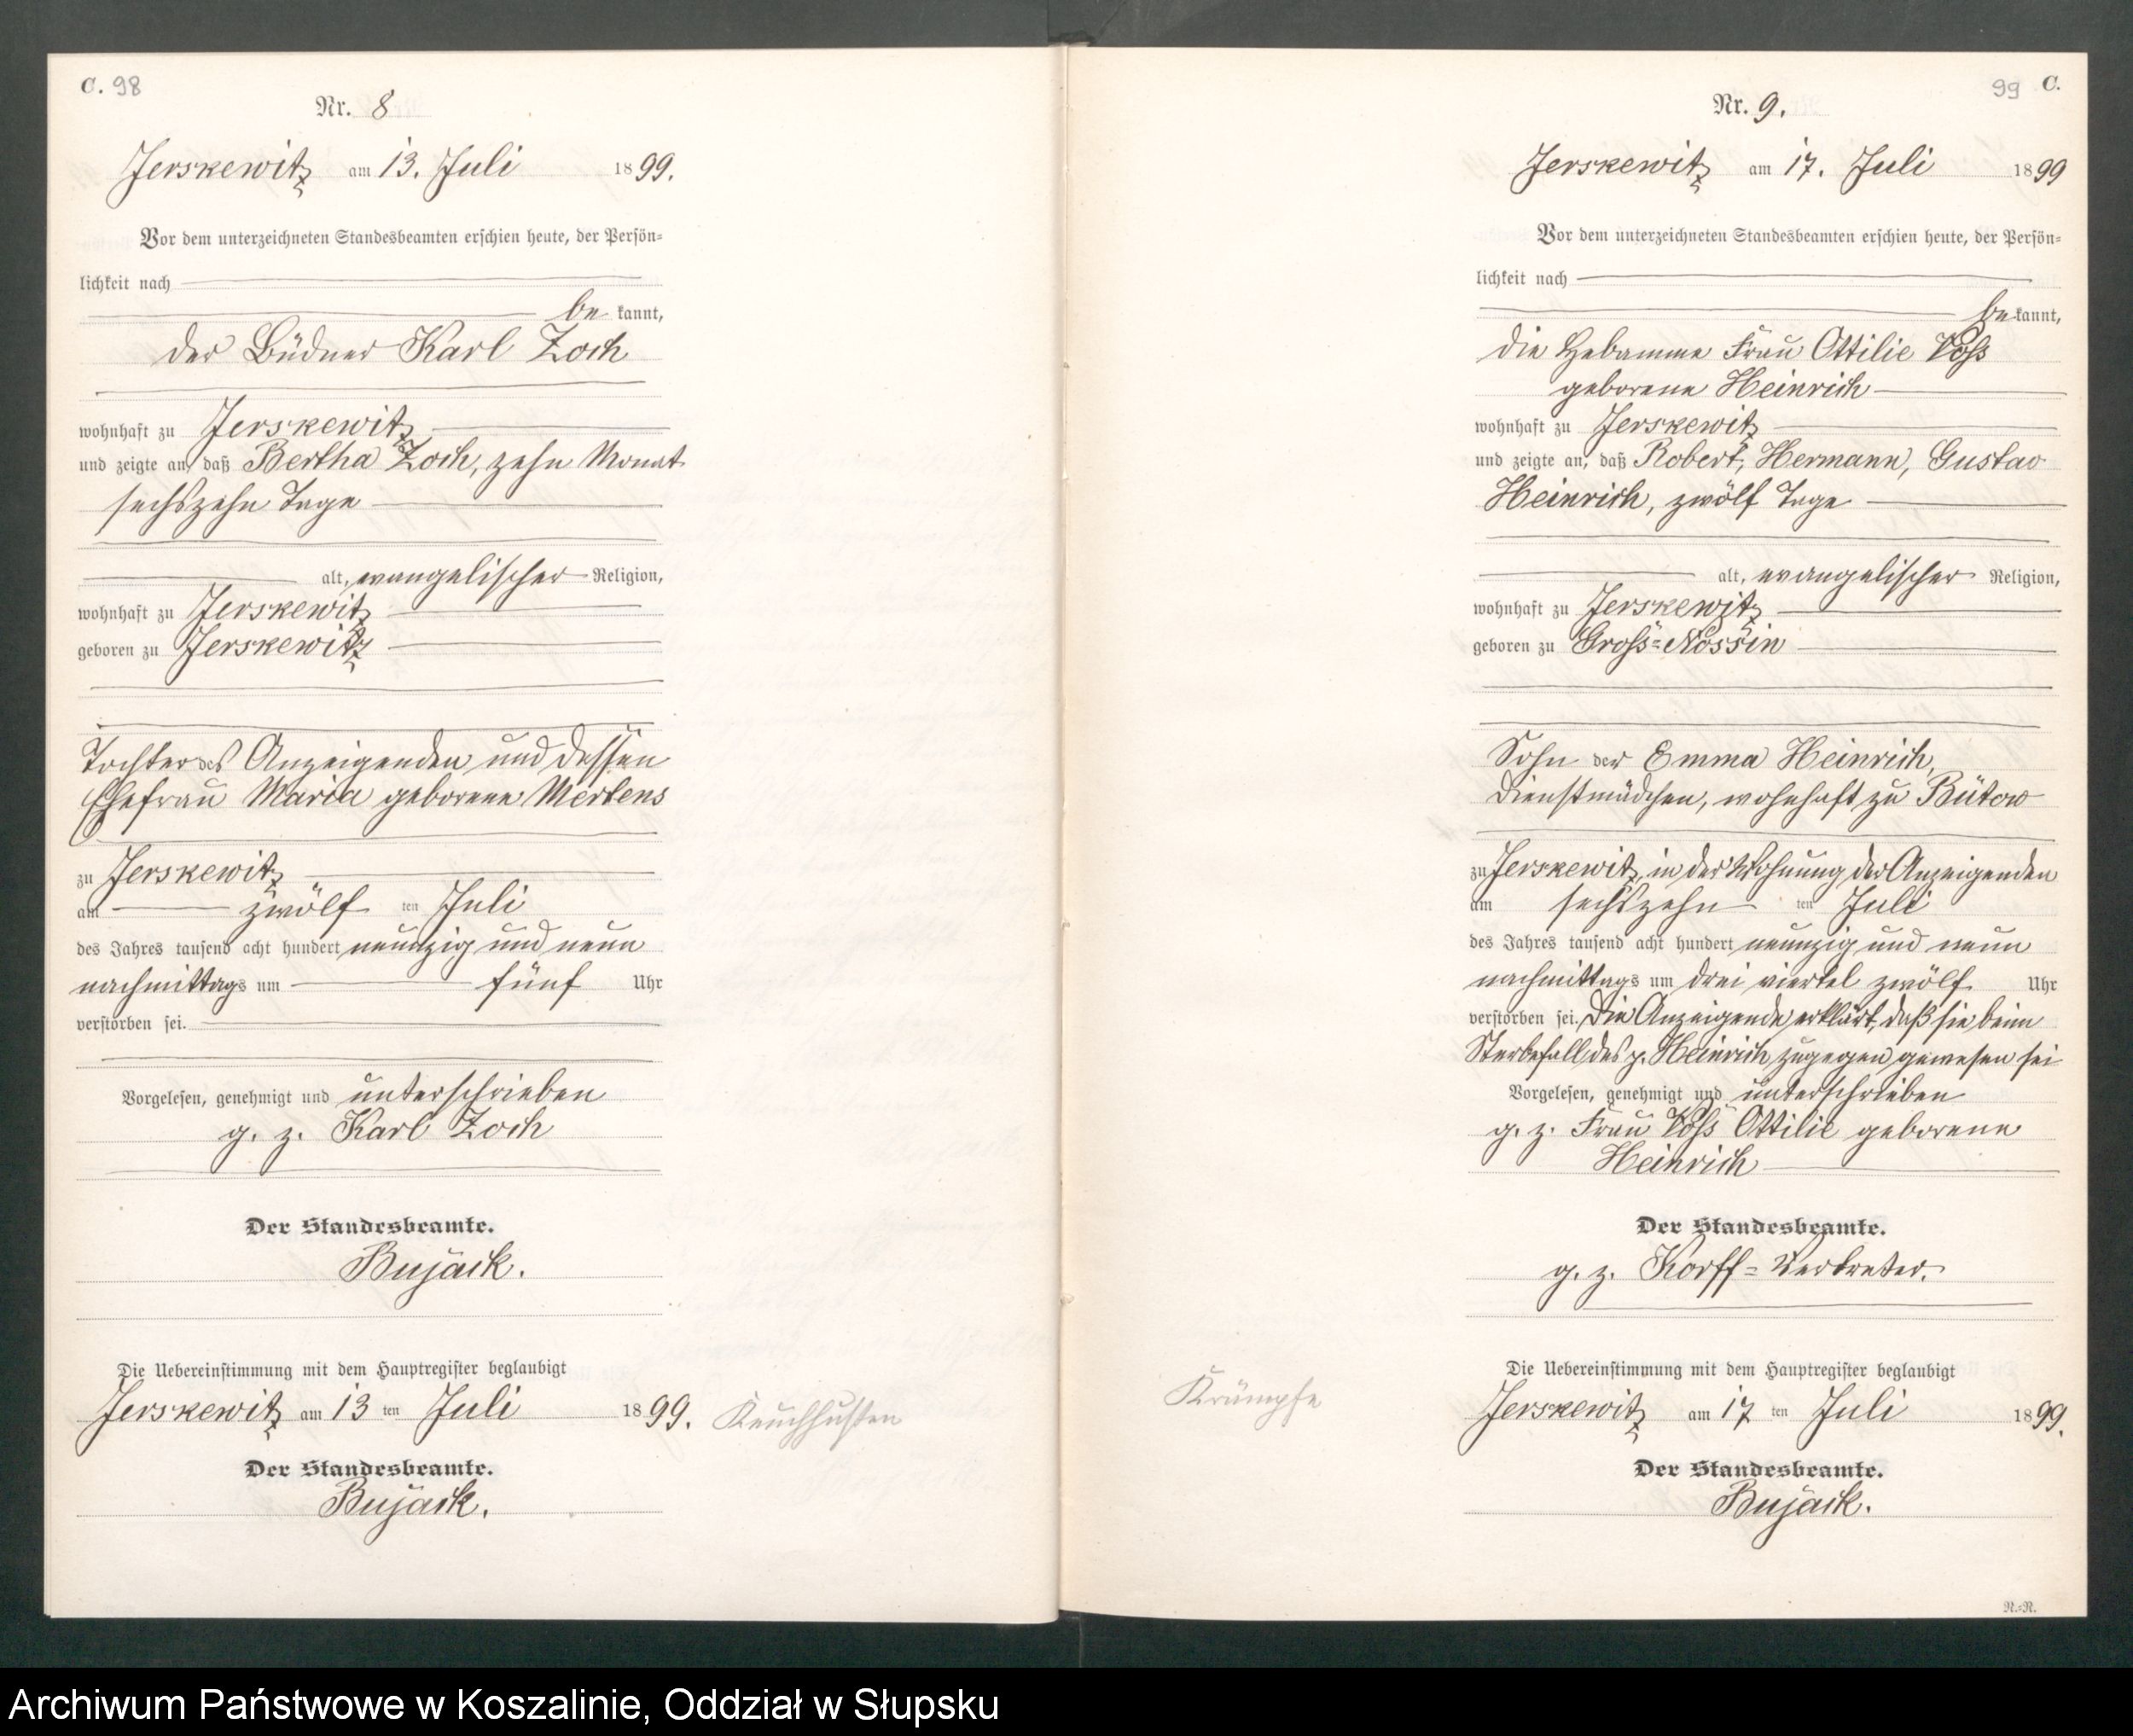 C. 98
Nr. 8
Jerskewitz am 13. Juli 1899.
Vor dem unterzeichneten Standesbeamten erschien heute, der Persön-
lichkeit nach
be kannt,
der Büdner Karl Zoch
wohnhaft zu Jerskewitz
und zeigte an, daß Bertha Zoch, zehn Monat
sechszehn Tage
alt, evangelischer Religion,
wohnhaft zu Jerskewitz
geboren zu Jerskewitz
Tochter des Anzeigenden und dessen
Ehefrau Maria geborene Mertens
zu Jerskewitz
am zwölf ten Juli
des Jahres tausend acht hundert neunzig und neun
nachmittags um fünf Uhr
verstorben sei.
Vorgelesen, genehmigt und unterschrieben
g. z. Karl Zoch
Der Standesbeamte.
Bujack.
Die Uebereinstimmung mit dem Hauptregister beglaubigt
Jerskewitz am 13 ten Juli 1899.
Keuchhusten
Der Standesbeamte.
Bujack.
99 C.
Nr. 9.
Jerskewitz am 17. Juli 1899
Vor dem unterzeichneten Standesbeamten erschien heute, der Persön-
lichkeit nach
be kannt,
die Hebamme Frau Ottilie Voß
geborene Heinrich
wohnhaft zu Jerskewitz
und zeigte an, daß Robert, Hermann, Gustav
Heinrich, zwölf Tage
alt, evangelischer Religion,
wohnhaft zu Jerskewitz
geboren zu Groß-Nossin
Sohn der Emma Heinrich,
Dienstmädchen, wohnhaft zu Bütow
zu Jerskewitz, in der Wohnung der Anzeigenden
am sechszehn ten Juli
des Jahres tausend acht hundert neunzig und neun
nachmittags um drei viertel zwölf Uhr
verstorben sei. Die Anzeigende erklärt, daß sie beim
Sterbefall des p. Heinrich zugegen gewesen sei
Vorgelesen, genehmigt und unterschrieben
g. z. Frau Voß Ottilie geborene
Heinrich
Der Standesbeamte.
g. z. Korff - Vertreter.
Die Uebereinstimmung mit dem Hauptregister beglaubigt
Krämpfe
Jerskewitz am 17 ten Juli 1899.
Der Standesbeamte.
Bujack.
R.-R.
Archiwum Państwowe w Koszalinie, Oddział w Słupsku